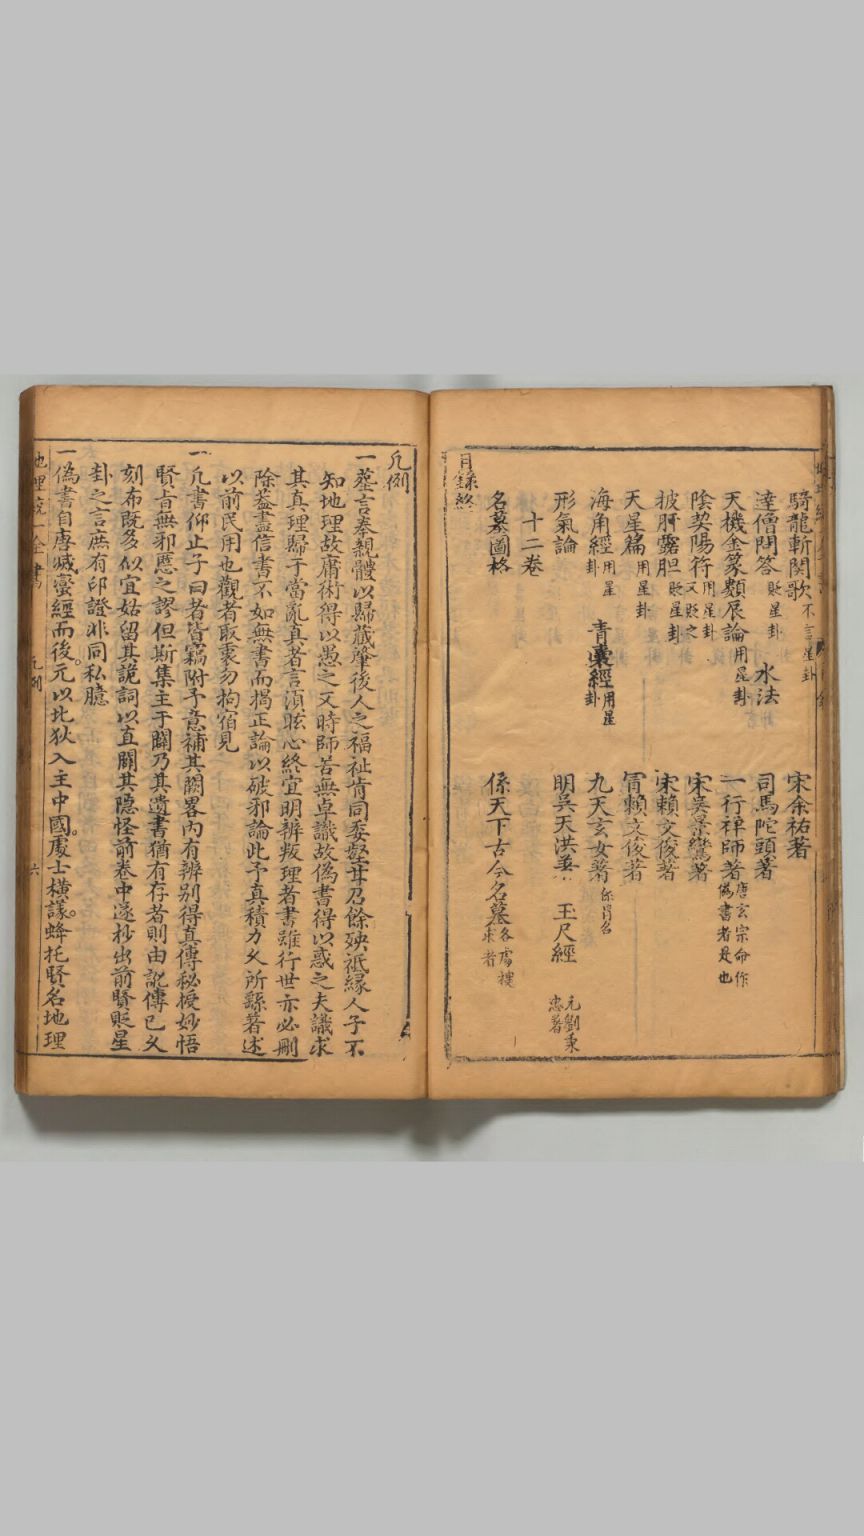 騎龍斬関歌不言星卦 宋余祐著
達僧問答貶星卦 水法 司馬陀頭著
天機金篆類展論用星卦 一行禅師著唐玄宗命作偽書者是也
陰契陽符用星卦又貶之 宋吳景鸞著
披肝露胆貶星卦 宋賴文俊著
天星篇用星卦 冐賴文俊著
海角經用星卦 青囊經用星卦 九天玄女著係冐名
形氣論 明吳天洪著 玉尺經元劉秉忠著
十二卷
名墓圖格 係天下古今名墓各處搜求者
目錄終
凡例
一塟言奉親體以歸藏肇後人之福祉肯同委壑耳召餘殃祗緣人子不
知地理故庸術得以愚之又時師苦無卓識故偽書得以惑之夫識求
其真理歸于當亂真者言湏眩心終宜明辨叛理者書雖行世亦必刪
除葢盡信書不如無書而揭正論以破邪論此予真積力久所繇著述
以前民用也觀者取裏勿拘宿見
一凡書仰止子曰者皆竊附予意補其闕畧內有辨别得真傳秘授妙悟
賢旨無邪慝之謬但斯集主于闢乃其遺書猶有存者則由訛傳已久
刻布既多似宜姑留其詭詞以直闢其隱怪前卷中逐抄出前賢貶星
卦之言庶有印證非同私臆
一偽書自唐㓕蠻經而後。元以北狄入主中國。處士橫議。蜂托賢名地理
地理統一全書 凡例 六